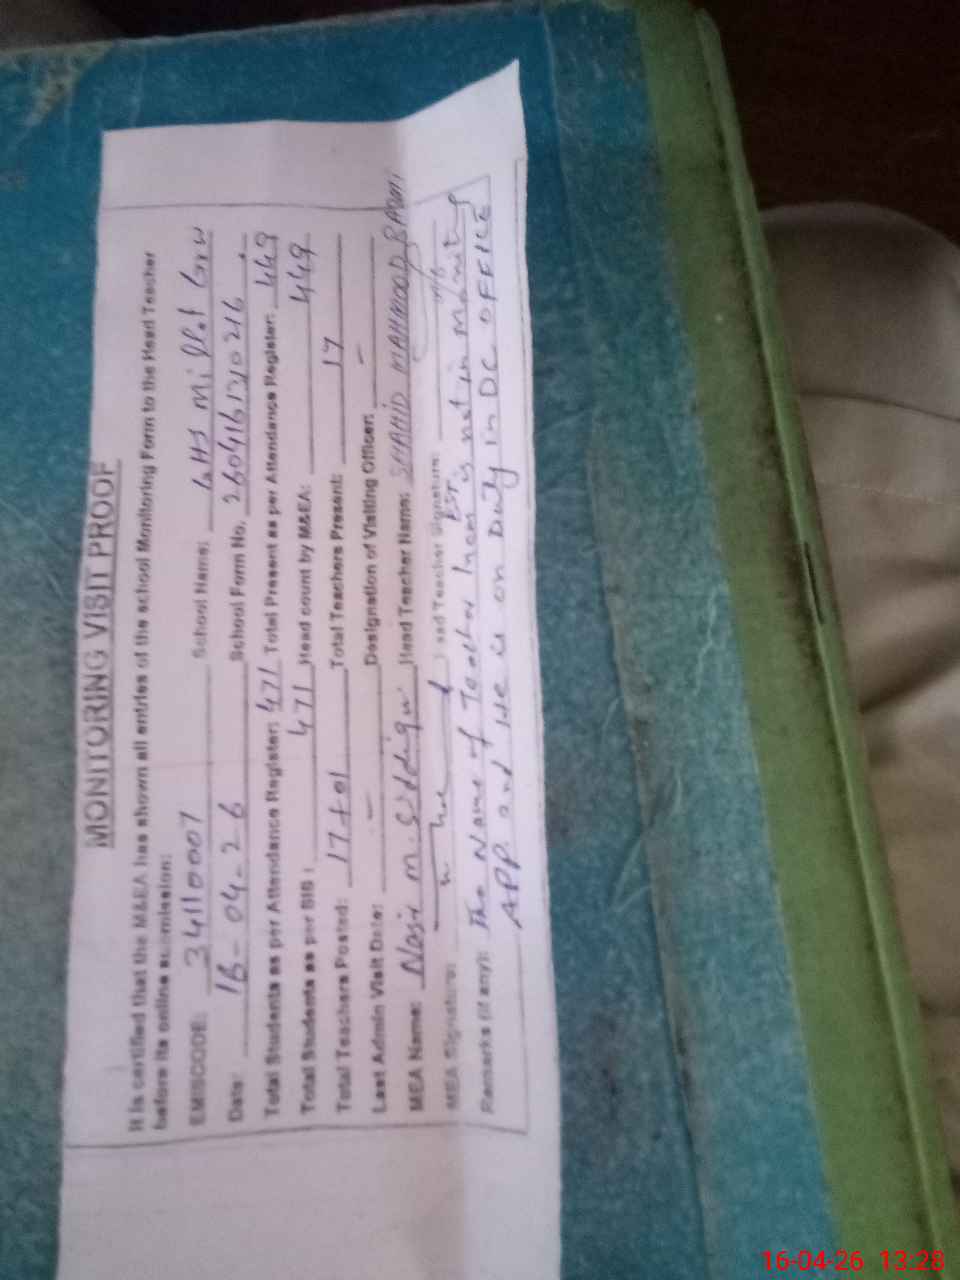 MONITORING VISIT PROOF
It is certified that the M&EA has shown all entries of the school Monitoring Form to the Head Teacher
before its online submission:
EMISCODE: 34110007 School Name: GHS Millat Grw
Date: 16-04-26 School Form No.
Total Students as per Attendance Register: 471 Total Present as per Attendance Register: 449
Total Students as per SIS: 471 Head count by M&EA: 449
Total Teachers Posted: 17+01 Total Teachers Present: 17
Last Admin Visit Date: - Designation of Visiting Officer: -
MEA Name: M. Head Teacher Name: SHAHID MAHMOOD
MEA Signature: Head Teacher Signature:
Remarks (if any): The Name of Teacher is not in
APP. and He is on Duty in DC OFFICE
16-04-26 13:28